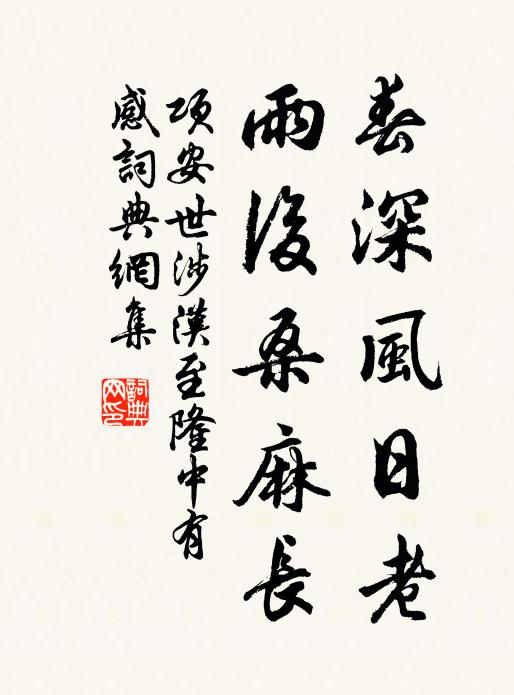 春深風日老
雨後桑麻長
項安世涉漢至隆中有
感詞典網集
詞典
网印